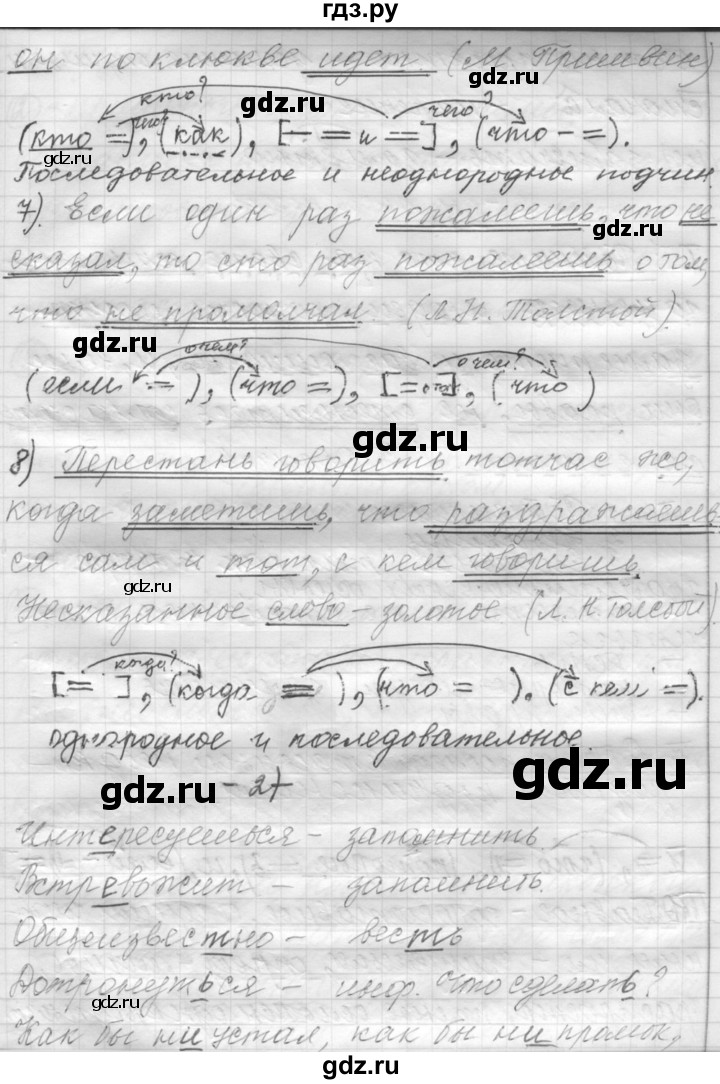 гдз.ру
он по клюкве идет. (М. Пришвин)
кто? чего?
(кто =), (как), [— = и =], (что — =).
Последовательное и неоднородное подчин.
7). Если один раз пожалеешь, что не
сказал, то сто раз пожалеешь о том,
что не промолчал. (Л. Н. Толстой).
о чем? о чем?
(если =), (что =), [= о том], (что )
8) Перестань говорить тотчас же,
когда заметишь, что раздражаешь-
ся сам и тот, с кем говоришь.
Несказанное слово – золотое. (Л. Н. Толстой).
когда?
[= ], (когда = ), (что = ). (с кем =).
однородное и последовательное.
– 2)
Интересуешься – запомнить
Встревожит – запомнить.
Общеизвестно – весть
Дотронуться – инф. что сделать?
Как бы ни устал, как бы ни промок,
gdz.ru
gdz.ru
gdz.ru
gdz.ru
gdz.ru
gdz.ru
gdz.ru
gdz.ru
gdz.ru
gdz.ru
gdz.ru